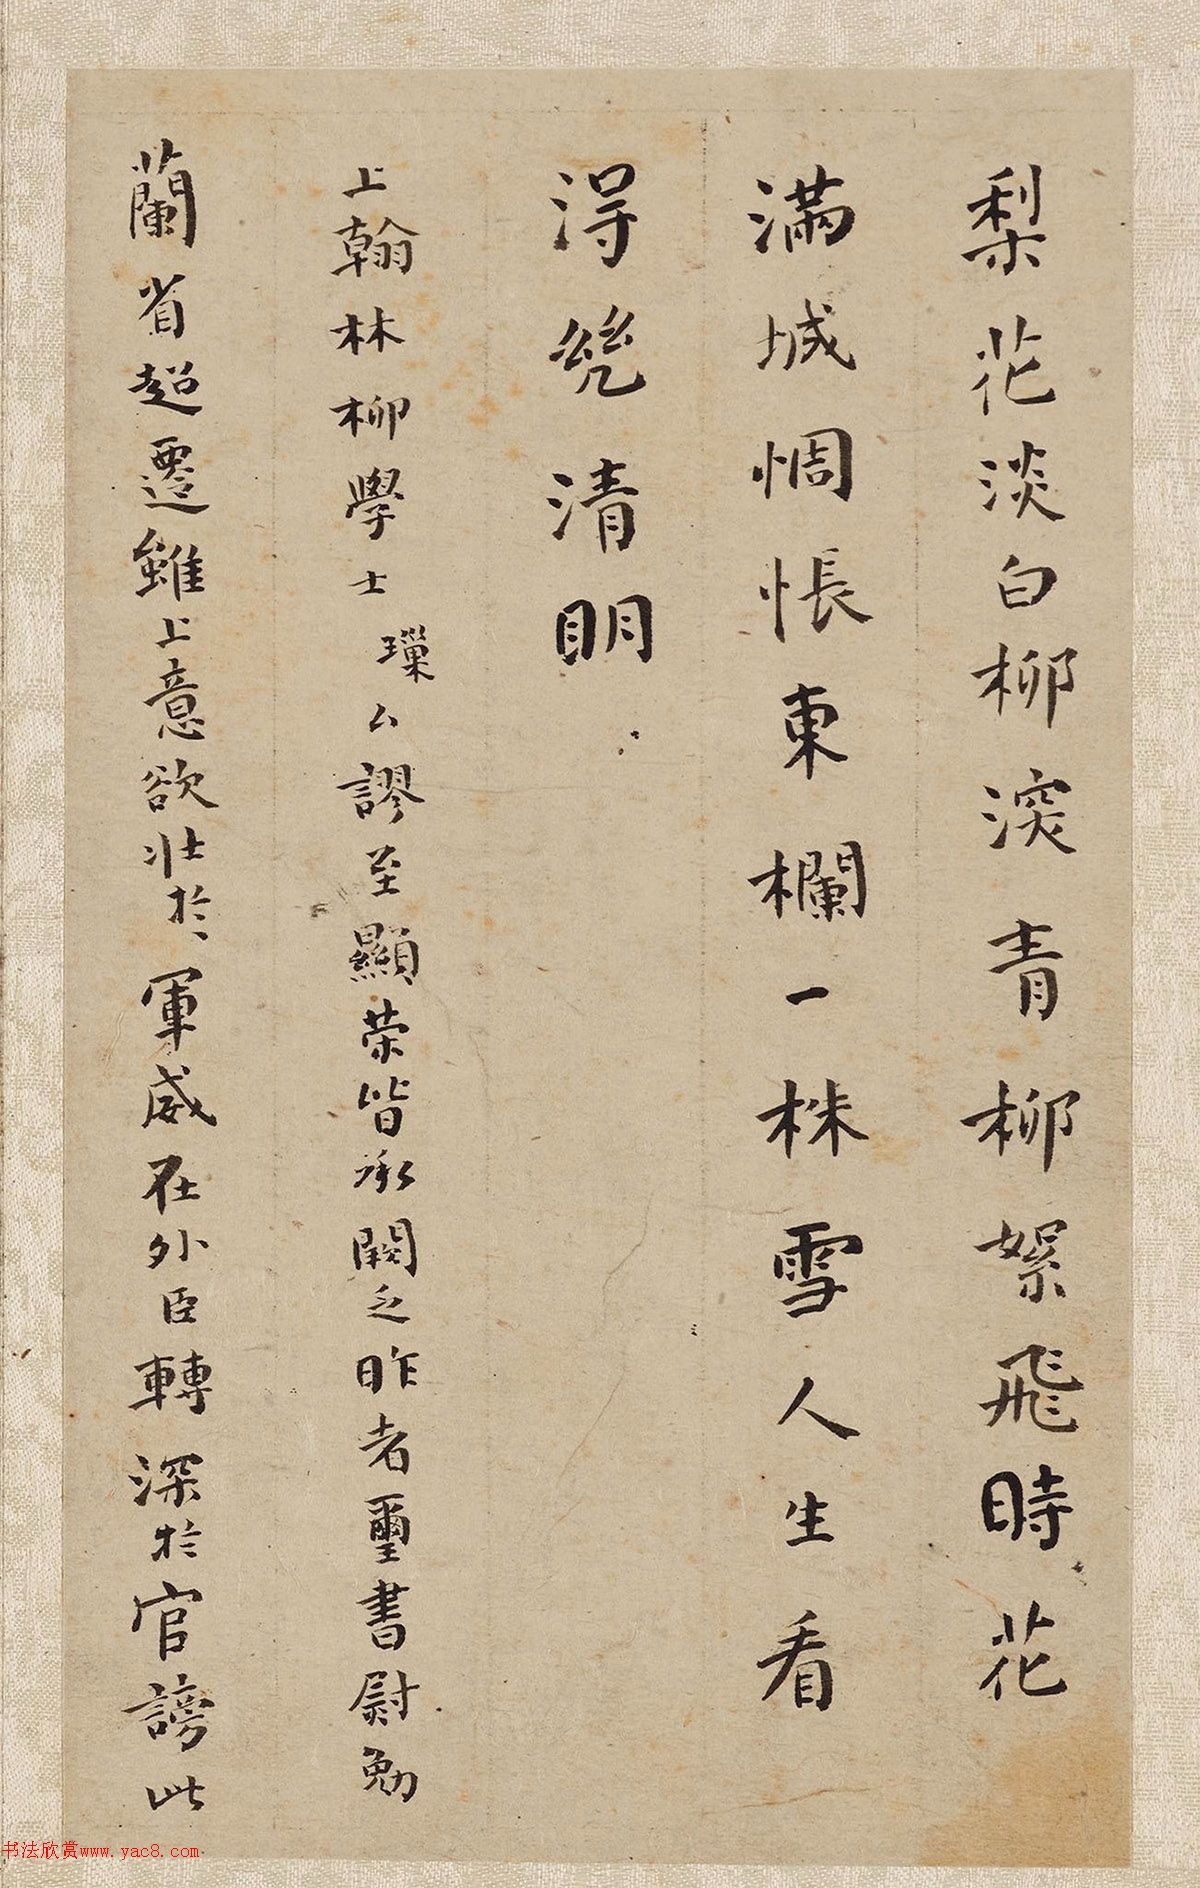 梨花淡白柳深青柳絮飛時花
滿城惆悵東欄一株雪人生看
淂幾清明
上翰林柳學士璪公謬至顯荣皆承闕乏昨者璽書尉勉
蘭省超遷雖上意欲壯於軍威在外臣轉深於官謗此
书法欣赏www.yac8.com